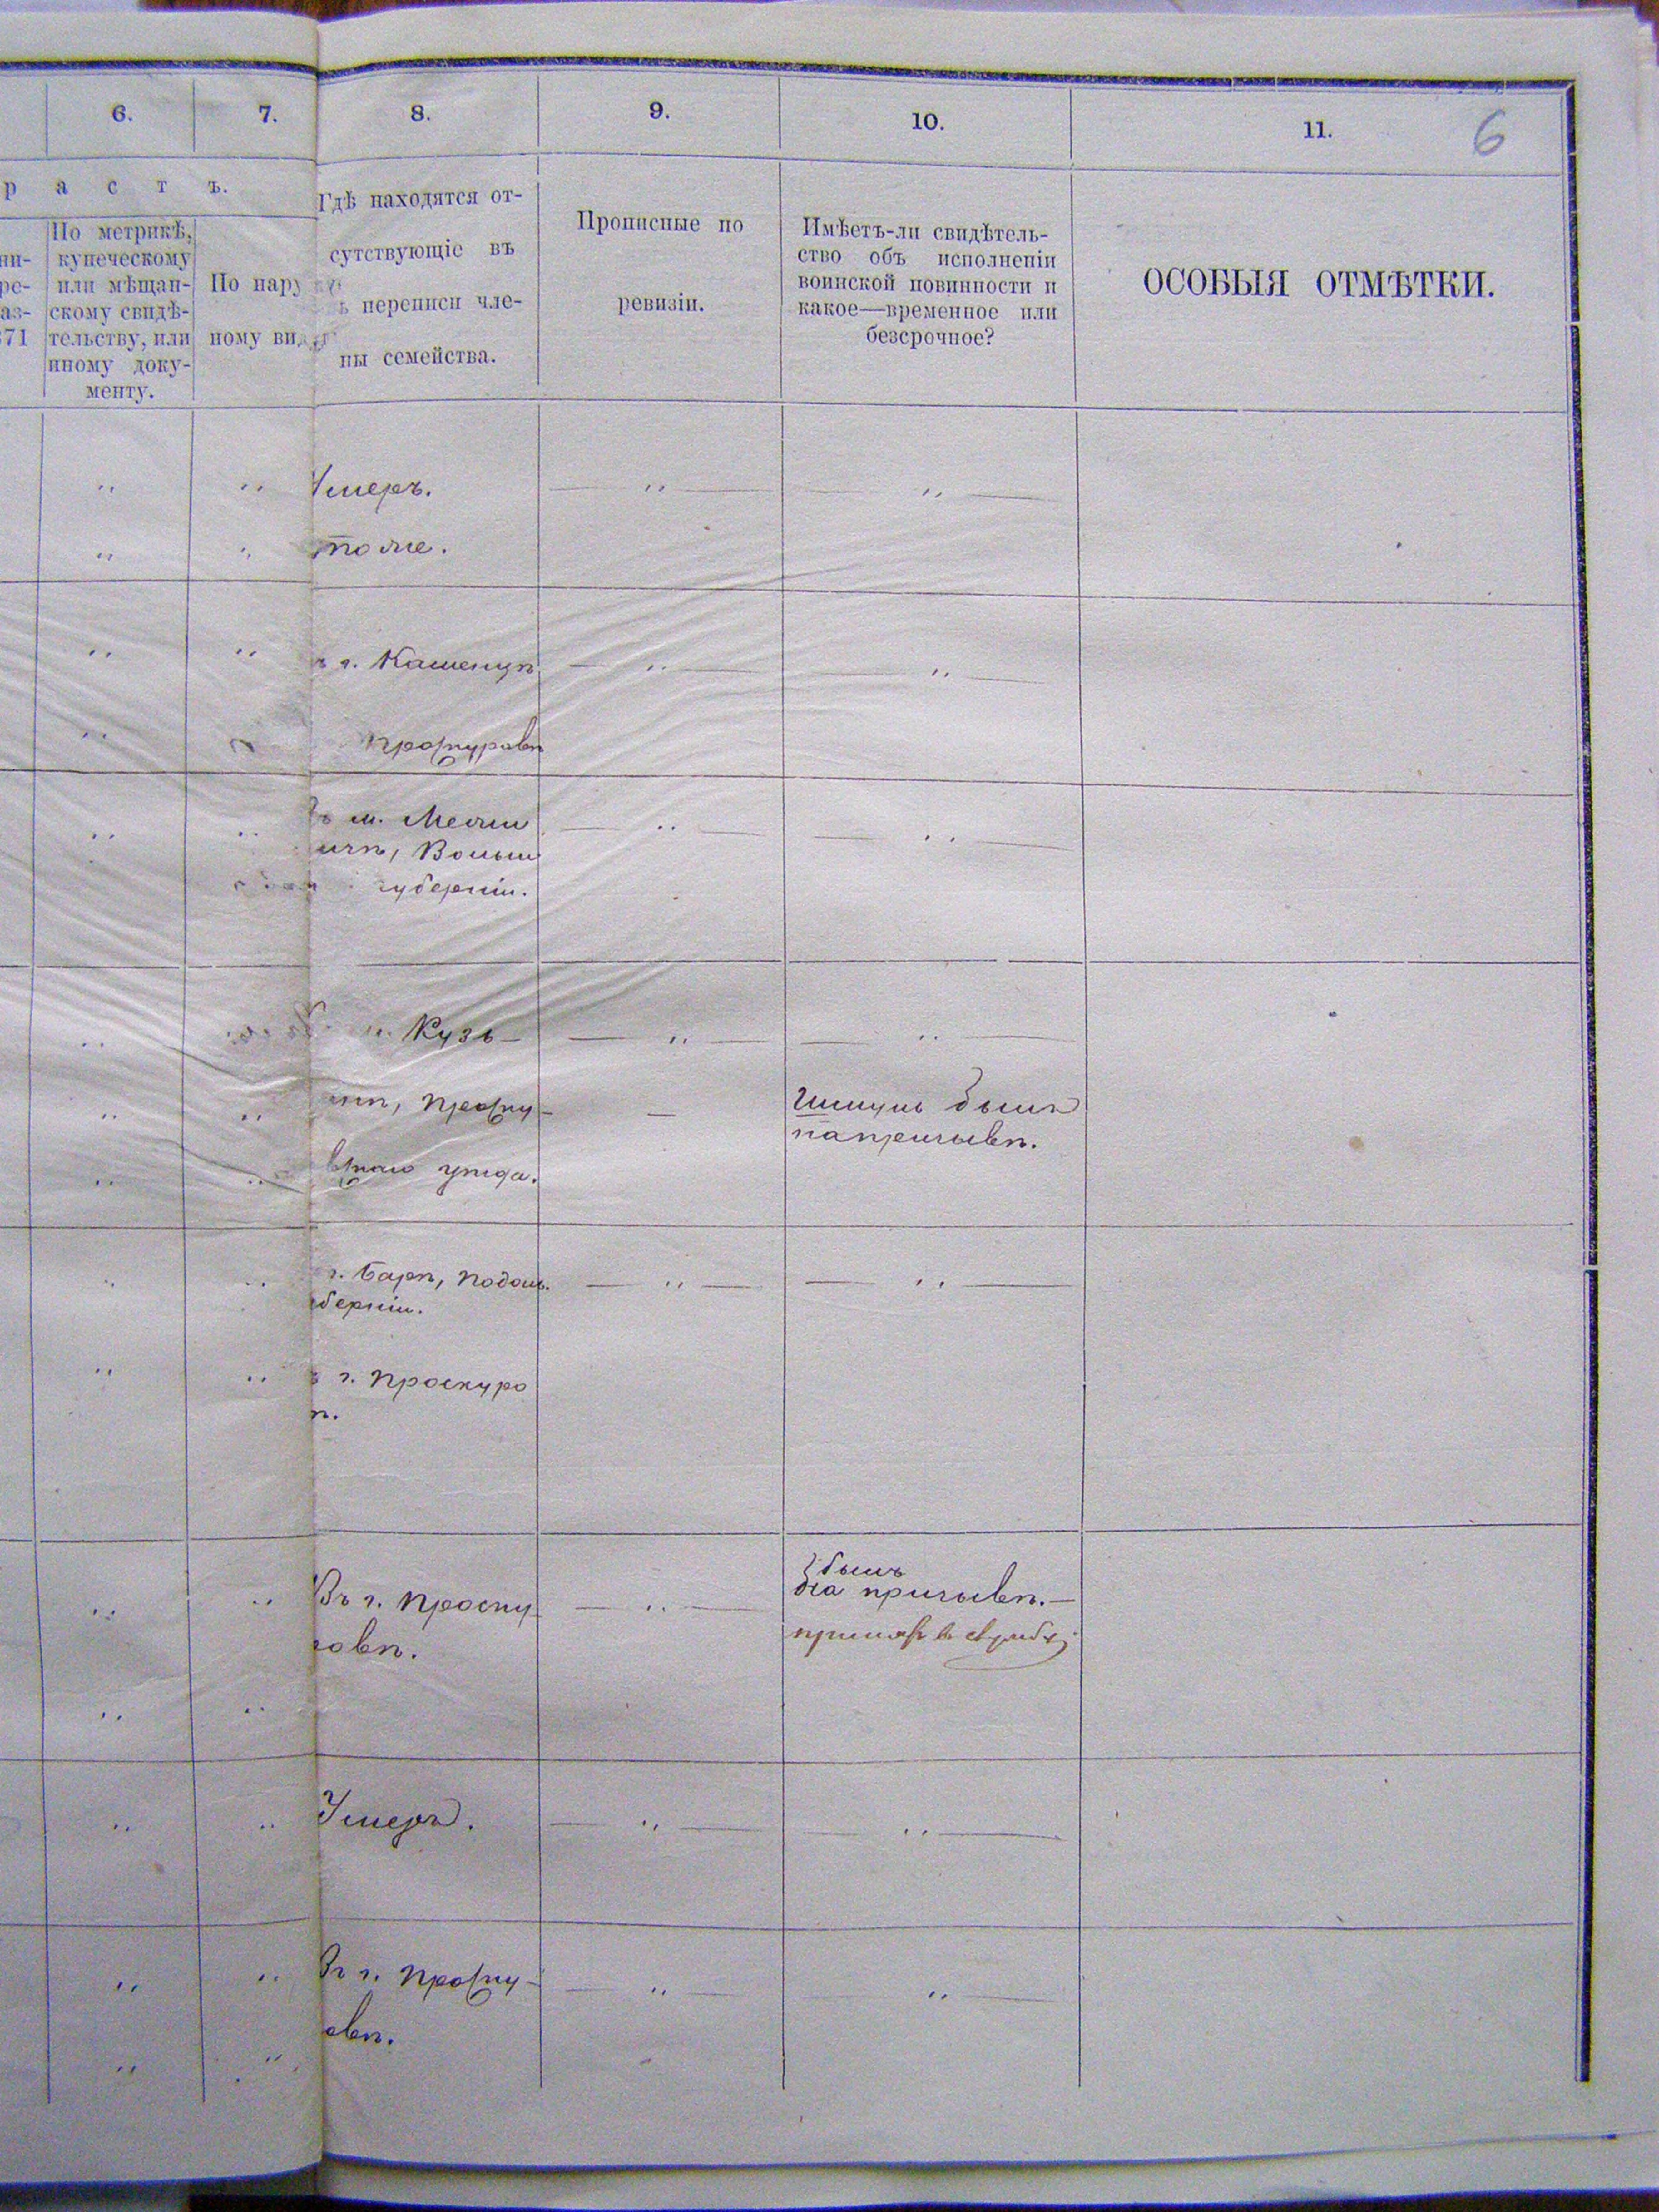 6. 7. 8. 9. 10. 11. 6
р а с т ъ.
По метрикѣ,
купеческому
или мѣщан-
скому свидѣ-
тельству, или
иному доку-
менту.
ни-
ре-
аз-
871
По нару
ному вид
Гдѣ находятся от-
сутствующіе въ
ъ переписи чле-
ны семейства.
Прописные по
ревизіи.
Имѣетъ-ли свидѣтель-
ство объ исполненіи
воинской повинности и
какое—временное или
безсрочное?
ОСОБЫЯ ОТМѢТКИ.
Умеръ.
тоже.
г. Каменцѣ
Проскуровѣ
м. Межи
ичѣ, Волын
губерніи.
Кузь-
инѣ, Проску-
вскаго уѣзда.
былъ
на призывѣ.
г. Барѣ, Подол.
берніи.
г. Проскуро
ѣ.
Въ г. Проску
ровѣ.
былъ
на призывѣ.—
принятъ въ службу
Умеръ.
Въ г. Проску-
овѣ.